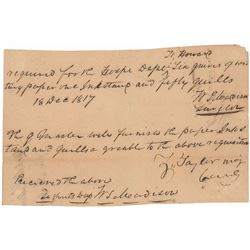 Ft Howard
required for the Hospl Dept Six quires of wri
ting paper one Inkstand and fifty quills
18 Dec 1817
W S Madison
Surgeon
The Q Master will furnish the paper Inkst
and and quills agreable to the above requisition
Z Taylor Maj
Comg
Recieved the above
W S Madison